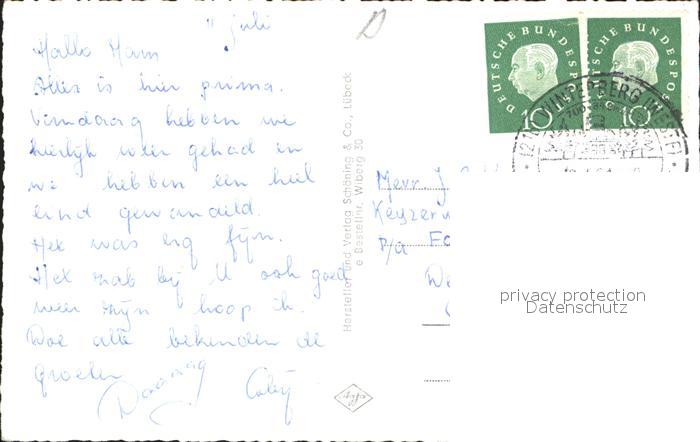 11 juli
Hallo Mam
Alles is hier prima.
Vandaag hebben we
heerlijk weer gehad en
we hebben een heel
eind gewandeld.
Het was erg fijn.
Het zal bij U ook goed
weer zijn hoop ik.
Doe alle bekenden de
groeten
Hersteller und Verlag Schöning & Co., Lübeck
e Bestellnr. Wiberg 30
Agfa
DEUTSCHE BUNDESPOST
10
DEUTSCHE BUNDESPOST
10
WINTERBERG (WESTF)
Mevr J
Keyzer
P/a
privacy protection
Datenschutz